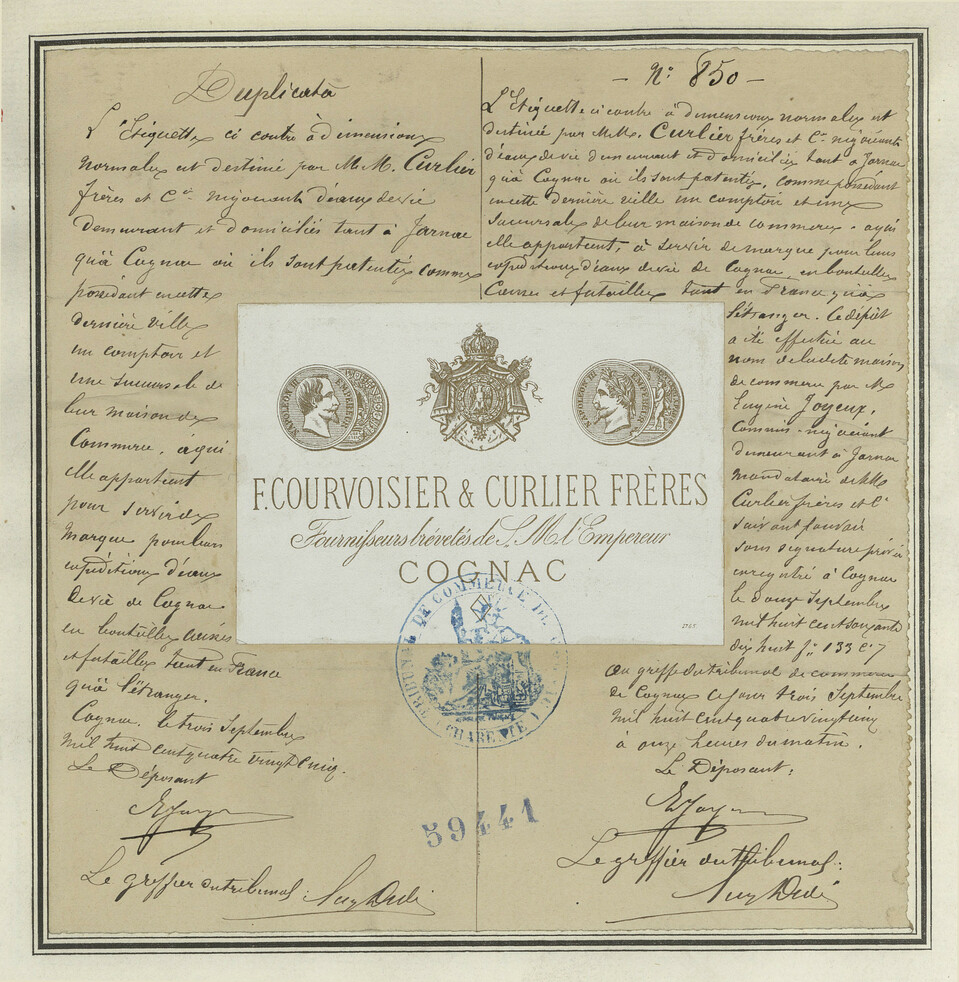 Duplicata
L'Etiquette ci contre à dimensions
normales et destiné par M.M. Curlier
frères et Cie négociants d'eaux de vie
demeurant et domiciliés tant à Jarnac
qu'à Cognac où ils sont patentés comme
possédant en cette
dernière ville
un comptoir et
une succursale de
leur maison de
Commerce, à qui
elle appartient
pour servir de
marque pour leurs
expéditions d'eaux
de vie de Cognac
en bouteilles caisses
et futailles tant en France
qu'à l'étranger.
Cognac, le trois Septembre
mil huit cent quatre vingt cinq.
Le Déposant
EJoyeux
Le greffier du tribunal:
- N° 850 -
L'Etiquette ci contre à dimensions normales et
destinée par M.M. Curlier frères et Cie négociants
d'eaux de vie demeurant et domiciliés tant à Jarnac
qu'à Cognac où ils sont patentés, comme possédant
en cette dernière ville un comptoir et une
succursale de leur maison de commerce, à qui
elle appartient, à servir de marque pour leurs
expéditions d'eaux de vie de Cognac, en bouteilles
Caisses et futailles tant en France qu'à
l'étranger. Ce dépôt
a été effectué au
nom de ladite maison
de commerce par M.
Eugène Joyeux,
Commis-négociant
demeurant à Jarnac
mandataire de MM
Curlier frères et Cie
suivant pouvoir
sous signature privée
enregistré à Cognac
le douze Septembre
mil huit cent soixante
dix huit fo 133 Ce 7
Au greffe du tribunal de commerce
de Cognac ce jour trois Septembre
mil huit cent quatre vingt cinq
à onze heures du matin.
Le Déposant:
EJoyeux
Le greffier du tribunal:
NAPOLEON III EMPEREUR
NAPOLEON III EMPEREUR
F. COURVOISIER & CURLIER FRÈRES
Fournisseurs brévetés de S. M. l'Empereur
COGNAC
TRIBUNAL DE COMMERCE DE
CHARENTE
59441